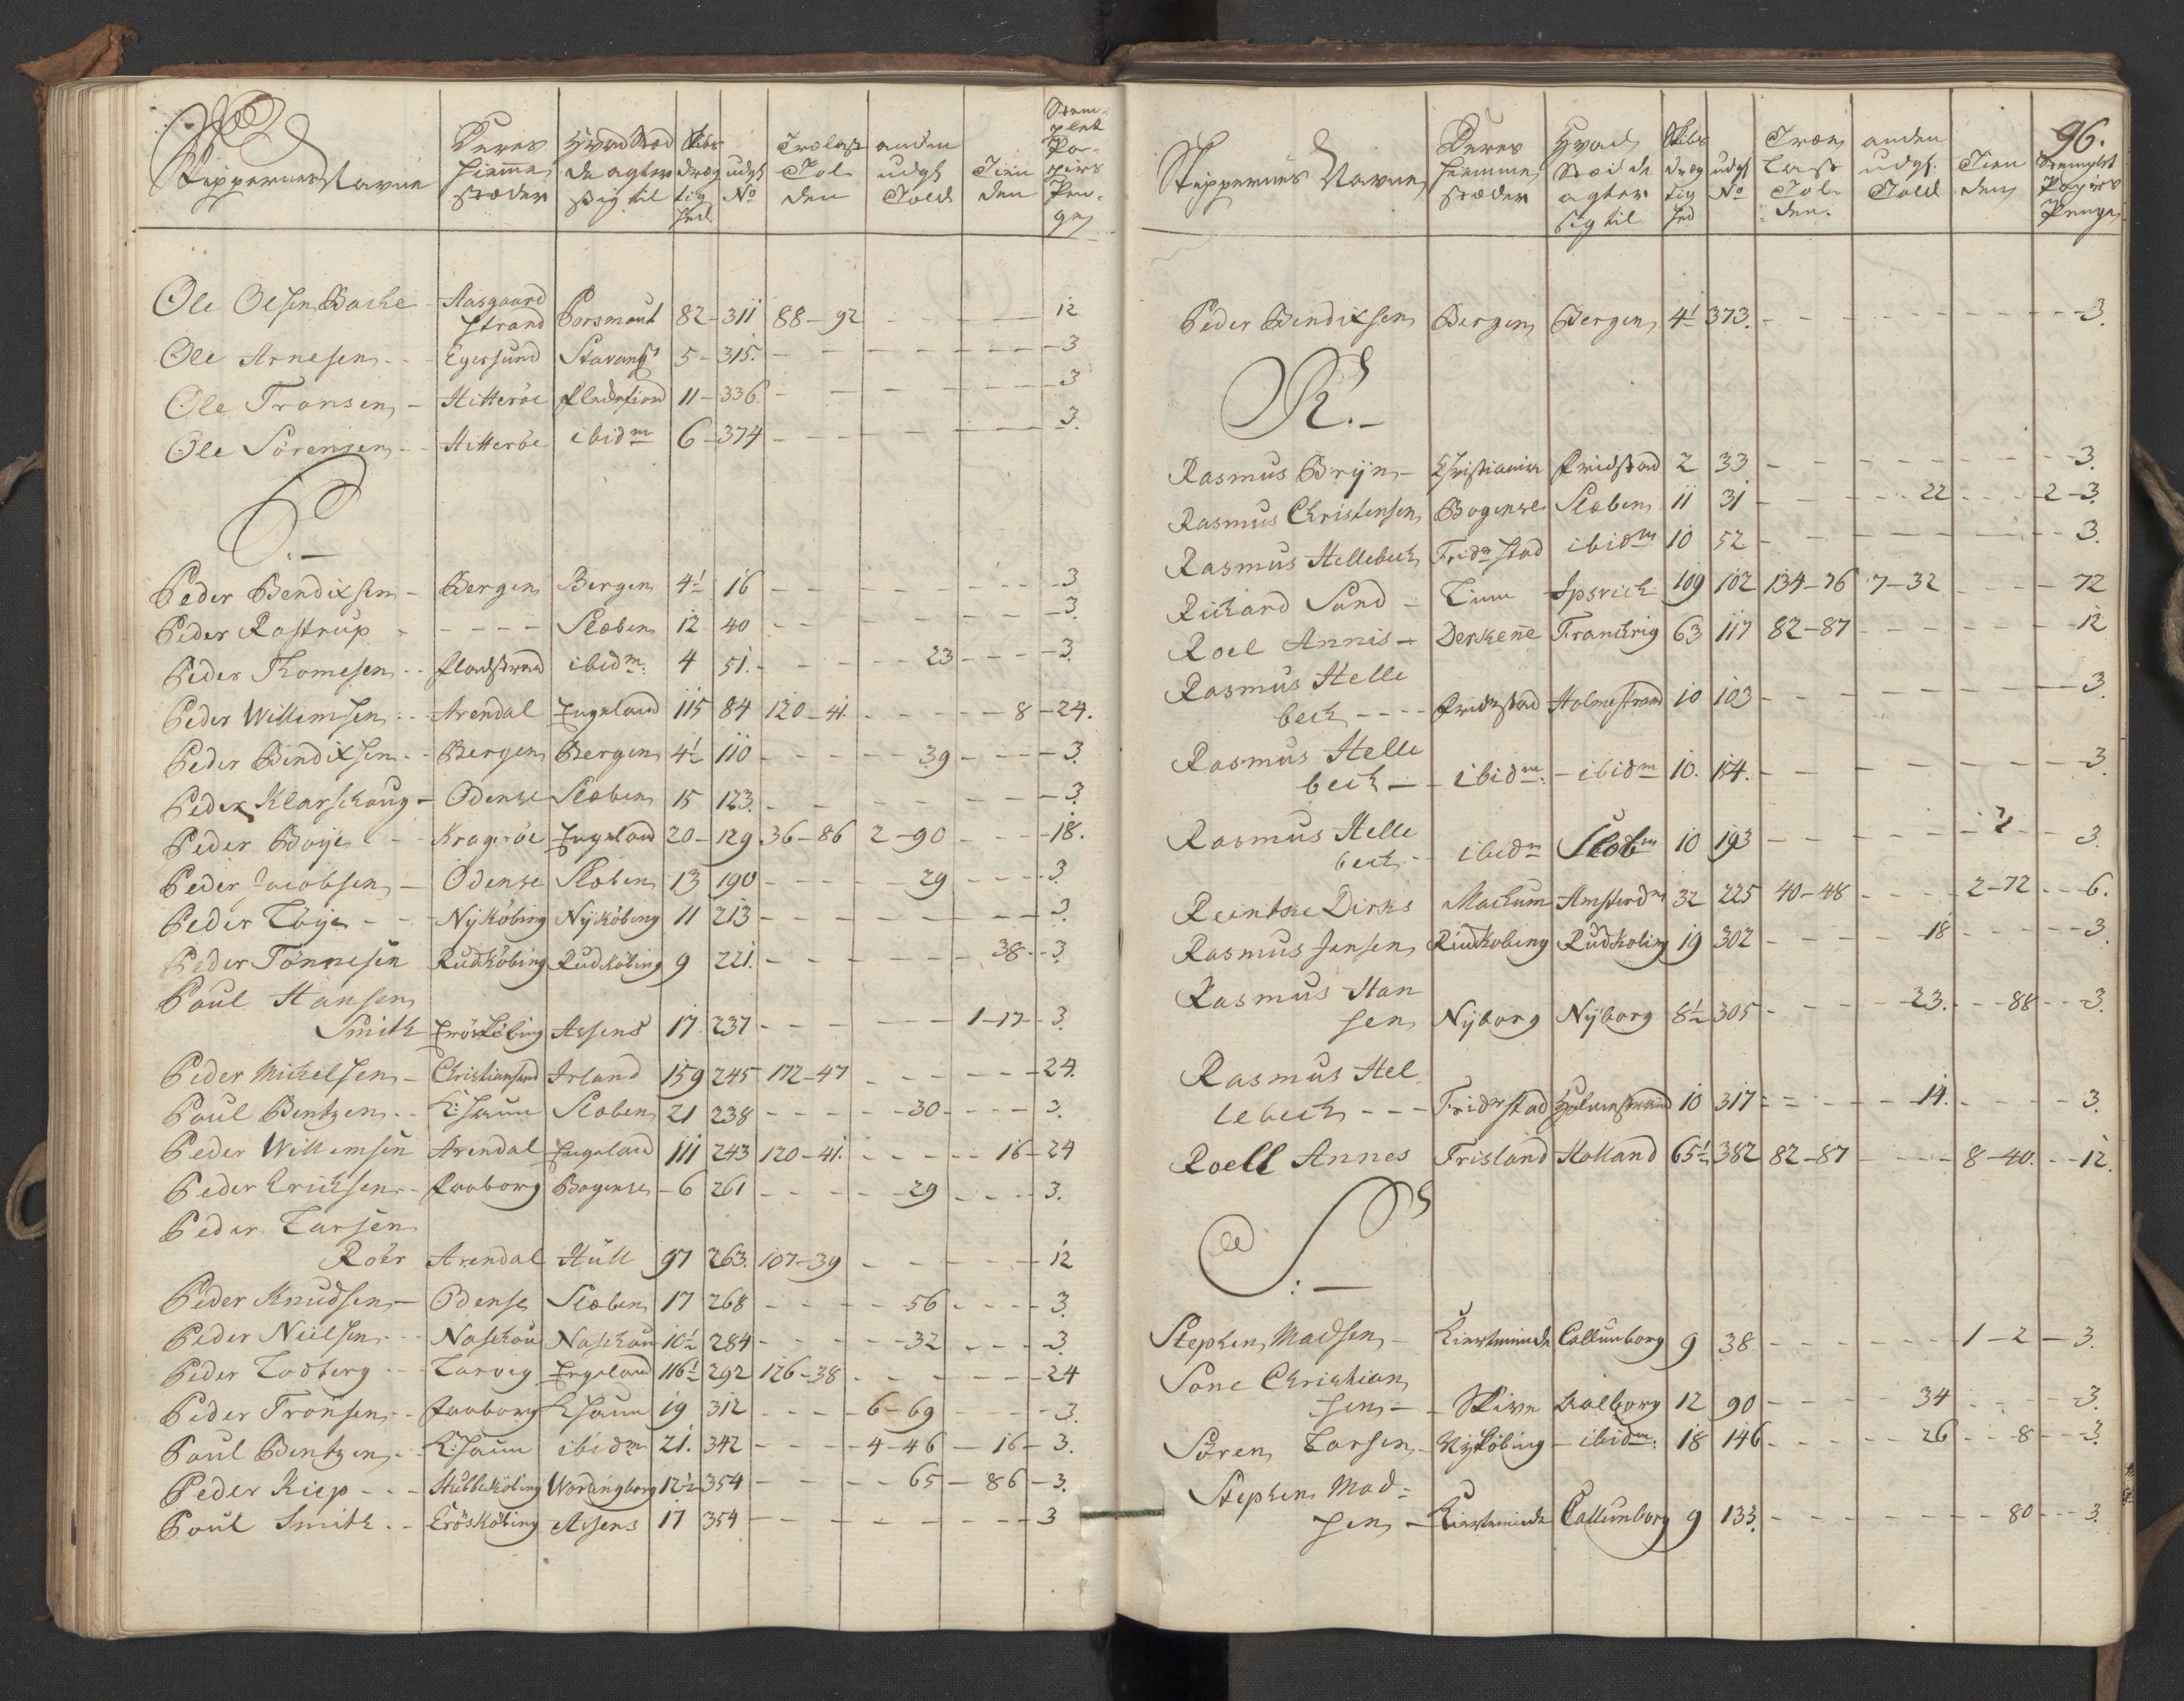 Skippernes Navne | Deres Hiemme stæder | Hvad Stæd de agter sig til | Skibs drægtighed | udg: No | Trælast Tolden | anden udg: Told | Tienden | Stemplet Papiirs Penge
Ole Olsen Bache - Aasgaard strand Porsmout 82 - 311 88 - 92 - - - 12
Ole Arnesen - - Egersund Stavang: 5 - 315. - - - 3
Ole Tronsen - Hitterøe Fladefiord 11 - 336 - - - 3
Ole Sørensen - - Hitterøe ibidm 6 - 374 - - - 3.
P. -
Peder Bendixsen - Bergen Bergen 4½ 16 - - - 3
Peder Rostrup - - - - - Sleben 12 40 - - - 3.
Peder Thomesen - - Fladstrand ibidm: 4 51. - - - 23 - - - 3.
Peder Willemsen - - Arendal Engeland 115 84 120 - 41. - - - 8 - 24.
Peder Bendixsen - - Bergen Bergen 4½ 110 - - - 39 - - - 3.
Peder Klarschoug - Odense Sleben 15 123. - - - 3.
Peder Boye - - Kragerøe Engeland 20 - 129 36 - 86 2 - 90 - - - 18.
Peder Jacobsen - Odense Sleben 13 190 - - - 29 - - - 3.
Peder Toye - - Nykøbing Nykøbing 11 213 - - - 3.
Peder Tønnesen Rudkøbing Rudkøbing 9 221. - - - 38 - - 3.
Poul Hansen
Smith Erøskøbing Assens 17. 237 - - - 1 - 17 - 3.
Peder Michelsen - Christiansand Irland 159 245 172 - 47 - - - 24.
Poul Bentzen - - K: haun Sleben 21 238 - - - 30 - - - 3.
Peder Willemsen Arendal Engeland 111 243 120 - 41. - - - 16 - 24
Peder Erichsen - - Faaborg Bogense - 6 261 - - - 29 - - - 3.
Peder Larsen
Roër Arendal Hull 97 263. 107 - 39 - - - 12
Peder Knudsen - Odense Sleben 17 268 - - - 56 - - - 3.
Peder Nielsen - - Naschou Naschou 10½ 284 - - - 32 - - - 3.
Peder Lodberg - - Larvig Engeland 116½ 292 126 - 38 - - - 24
Peder Tronsen - - Faaborg K haun 19 312 - - - 6 - 69 - - - 3.
Poul Bentzen - - K: haun ibidm 21. 342 - - - 4 - 46 - 16 - 3.
Peder Riep - - - Stubbekøbing Wordingborg 12½ 354 - - - 65 - 86 - 3.
Poul Smith - - Erøskøbing Assens 17 354 - - - 3
96.
Skippernes Navne | Deres Hiemme stæder | Hvad Stæd de agter sig til | Skibs drægtighed | udg: No | Trælast Tolden. | anden udg: Told | Tienden | Stemplet Papiirs Penge
Peder Bendixsen Bergen Bergen 4½ 373. - - - 3.
R. -
Rasmus Bryn - Christiania Fridstad 2 33 - - - 3.
Rasmus Christensen Bogense Sleben 11 31 - - - 22 - - - 2 - 3.
Rasmus Hellebech Fridr stad ibidm 10 52 - - - 3.
Richard Sand - Ipsvich 109 102 134 - 76 7 - 32 - - - 72
Roel Annis - Franchrig 63 117 82 - 87 - - - 12
Rasmus Helle
bech - - - - Fridrstad Holmestrand 10 103 - - - 3.
Rasmus Helle
bech - - ibidm: - ibidm 10. 154. - - - 3.
Rasmus Helle
bech - - ibidm Slebn 10 193 - - - 3.
Reintske Dirks Mackum Amsterdm 32 225 40 - 48 - - - 2 - 72 - - 6.
Rasmus Jensen Rudkobing Rudkobing 19 302 - - - 18 - - - 3.
Rasmus Han
sen Nyborg Nyborg 8½ 305 - - - 23. - - 88 - - 3.
Rasmus Hel
lebech - - - Fridrstad Holmestrand 10 317 - - - 14. - - - 3.
Roell Annes Frisland Holland 65½ 382 82 - 87 - - - 8 - 40. - - 12.
S. : -
Stephen Madsen - Kierteminde Callundborg 9 38 - - - 1 - 2 - 3.
Sone Christian
sen - - Skive Aalborg 12 90 - - - 34 - - - 3.
Søren Larsen - Nykøbing - ibidm: 18 146 - - - 26 - - 8 - - 3.
Stephen Mad=
sen - Kierteminde Callundborg 9 133. - - - 80 - - - 3.